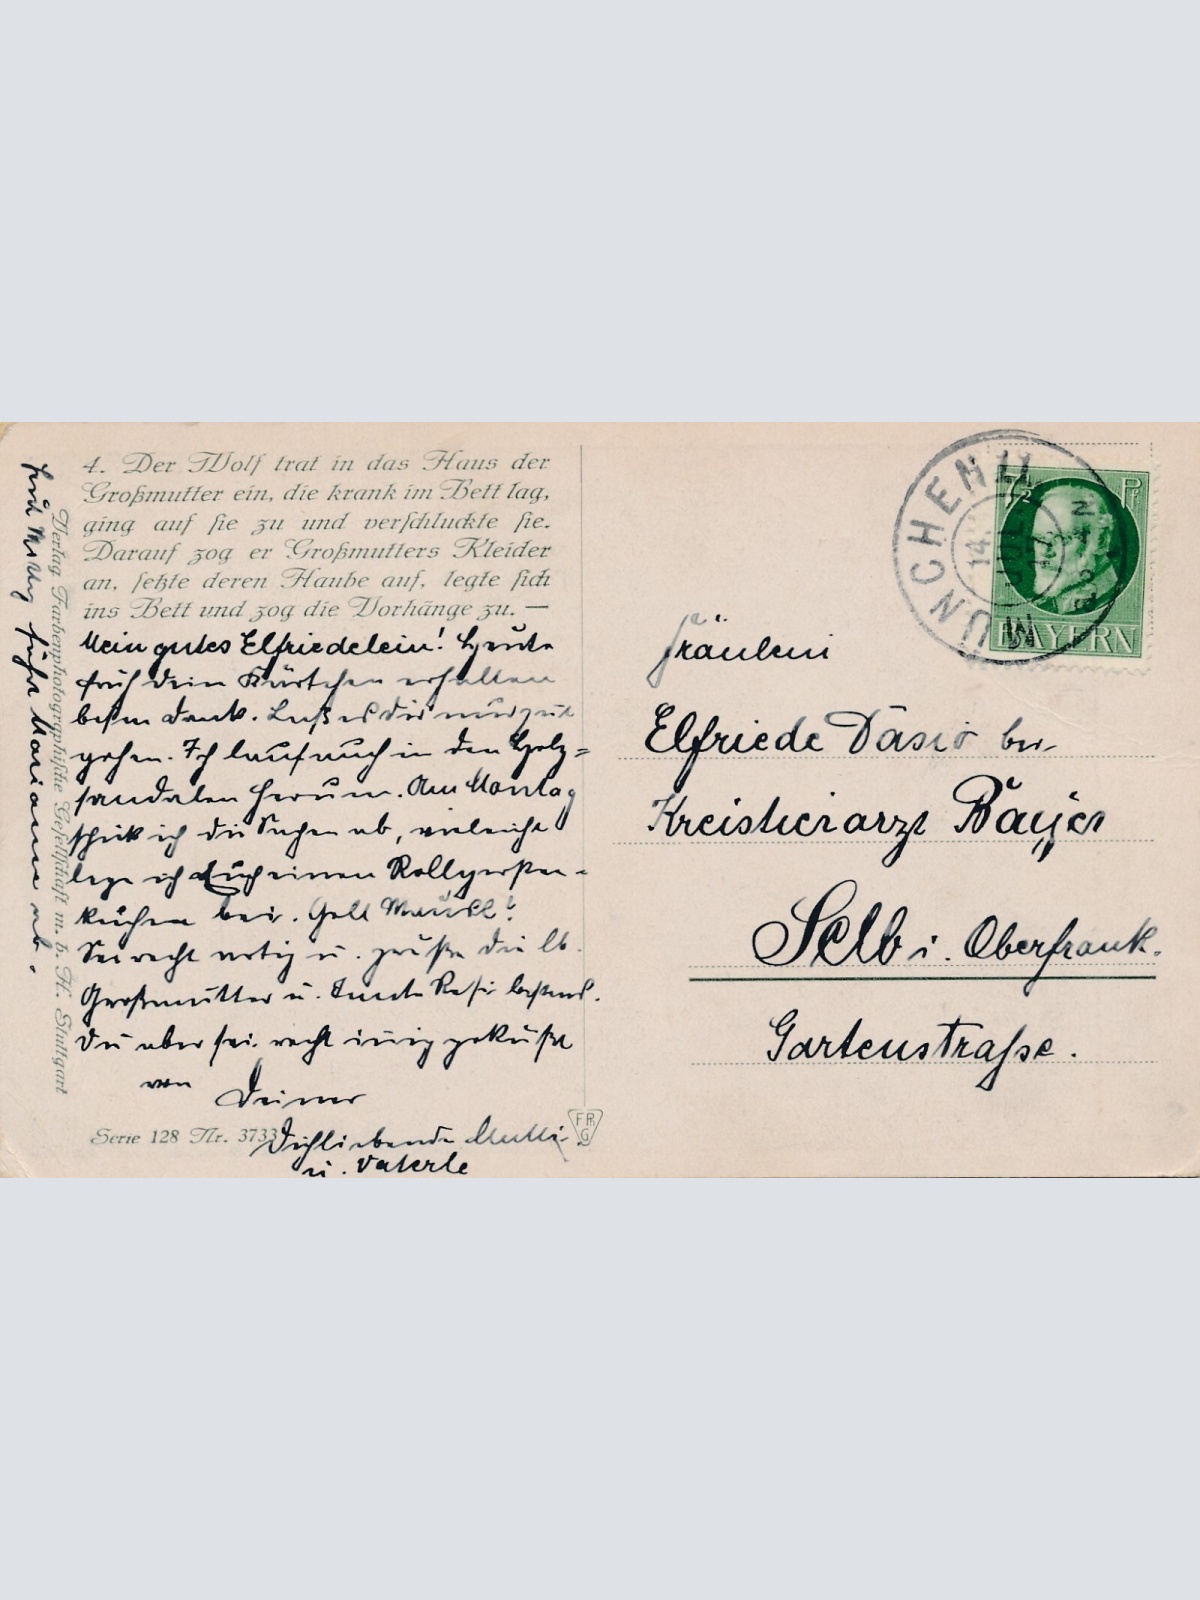 4. Der Wolf trat in das Haus der
Großmutter ein, die krank im Bett lag,
ging auf sie zu und verschluckte sie.
Darauf zog er Großmutters Kleider
an, setzte deren Haube auf, legte sich
ins Bett und zog die Vorhänge zu. —
Mein gutes Elfriedelein! Heute
früh dein Kärtchen erhalten
besten Dank. Laß es dir nur gut
gehen. Ich lauf auch in den Holz=
sandalen herum. Am Montag
schick ich die Sachen ab, vieleicht
lege ich Euch einen
kuchen bei. Gell Mausl!
Sei recht artig u. grüße die lb.
Großmutter u. Tante Resi bestens.
Du aber sei recht innig geküßt
von Deiner
Dichliebende Mutti
u. Vaterle
führt Marianne ab.
Verlag Farbenphotographische Gesellschaft m. b. H. Stuttgart
Serie 128 Nr. 3733
FPG
MÜNCHEN
14.
7½ Pf
BAYERN
Fräulein
Elfriede Dasio bei
Kreistierarzt Bayer
Selb i. Oberfrank.
Gartenstrasse.